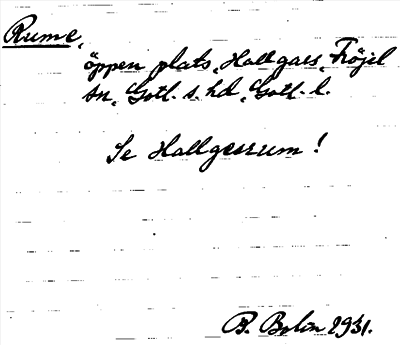 Rume,
öppen plats, Hallgars, Fröjel
sn, Gotl. s. hd, Gotl. l.
Se Hallgesrum!
B. Bolin 1931.